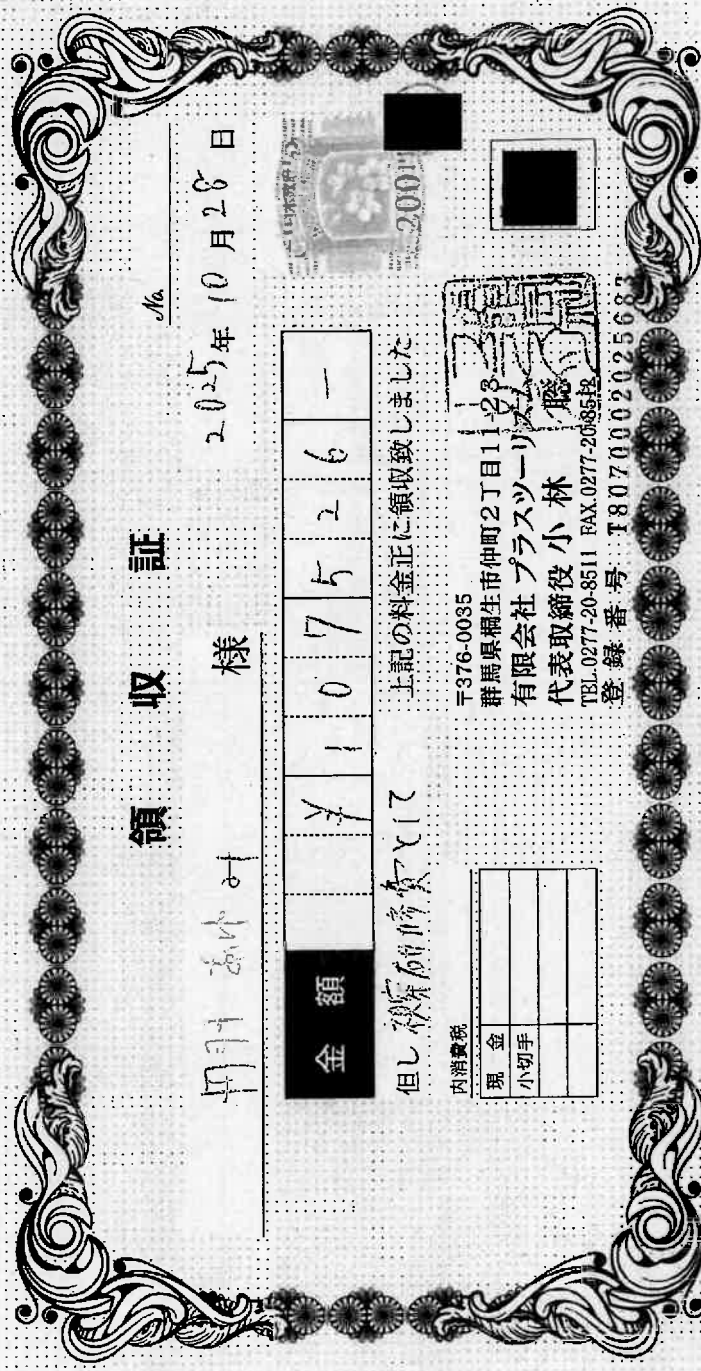 領収証
No.
2025年10月28日
様
金額 ¥107526−
但し視察研修費として 上記の料金正に領収致しました
日本政府
200円
内消費税
現金
小切手
〒376-0035
群馬県桐生市仲町2丁目11-23
有限会社プラスツーリズム
代表取締役 小林 聡
TEL.0277-20-8511 FAX.0277-20-8512
登録番号 T8070002025687